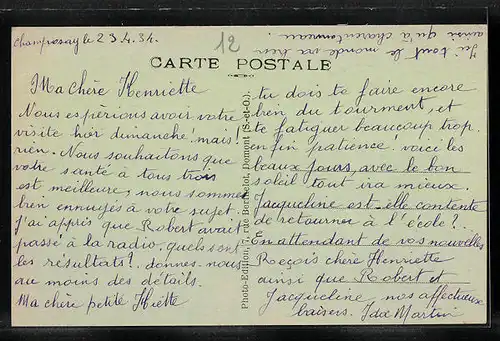 Champrosay le 23.4.34.
12
Ici tout le monde va bien
ainsi qu'à Charentonneau.
CARTE POSTALE
Ma chère Henriette
Nous espérions avoir votre
visite hier dimanche! mais!
rien. Nous souhaitons que
votre santé à tous trois
est meilleure, nous sommes
bien ennuyés à votre sujet.
J'ai appris que Robert avait
passé à la radio. quels sont
les résultats? donnez-nous
au moins des détails.
Ma chère petite Hiette
Photo-Edition, 7, rue Berthelot, Domont (S.-et-O.).
tu dois te faire encore
bien du tourment, et
te fatiguer beaucoup trop.
enfin patience. voici les
beaux jours, avec le bon
soleil tout ira mieux.
Jacqueline est-elle contente
de retourner à l'école?
En attendant de vos nouvelles
Reçois chère Henriette
ainsi que Robert et
Jacqueline, nos affectueux
baisers. Ida Martin